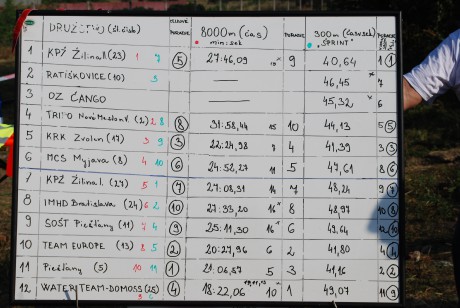 DRUŽSTVO (št. číslo) CELKOVÉ PORADIE 8000m (čas) min:sek PORADIE 300m (čas v sek) „SPRINT“ PORADIE
1 KPŽ Žilina I. (23) 1 7 5 27:46,09 9 40,64 1 1
2 RATIŠKOVICE (10) 9 — 46,45 7
3 OZ ČANGO — 45,32 6
4 TRIPO Nové Mesto n. V. (2) 2 8 8 31:58,44 15 10 44,13 5 5
5 KRK Zvolen (17) 3 9 3 22:24,98 7 4 41,39 3 3
6 MCS Myjava (8) 4 10 6 24:52,27 11 5 47,61 8 6
7 KPŽ Žilina II. (27) 5 1 7 27:08,31 14 7 48,24 9 7
8 IMHD Bratislava (24) 6 2 10 27:33,20 16 8 48,97 10 8
9 SOŠT Piešťany (11) 7 4 9 25:11,30 16 6 49,64 12 10
10 TEAM EUROPE (13) 8 5 2 20:27,96 6 2 41,80 4 4
11 Piešťany (5) 10 11 1 21:06,57 5 3 41,16 2 2
12 WATER TEAM-DOMOSS (25) 4 18:22,06 10 1 49,07 11 9